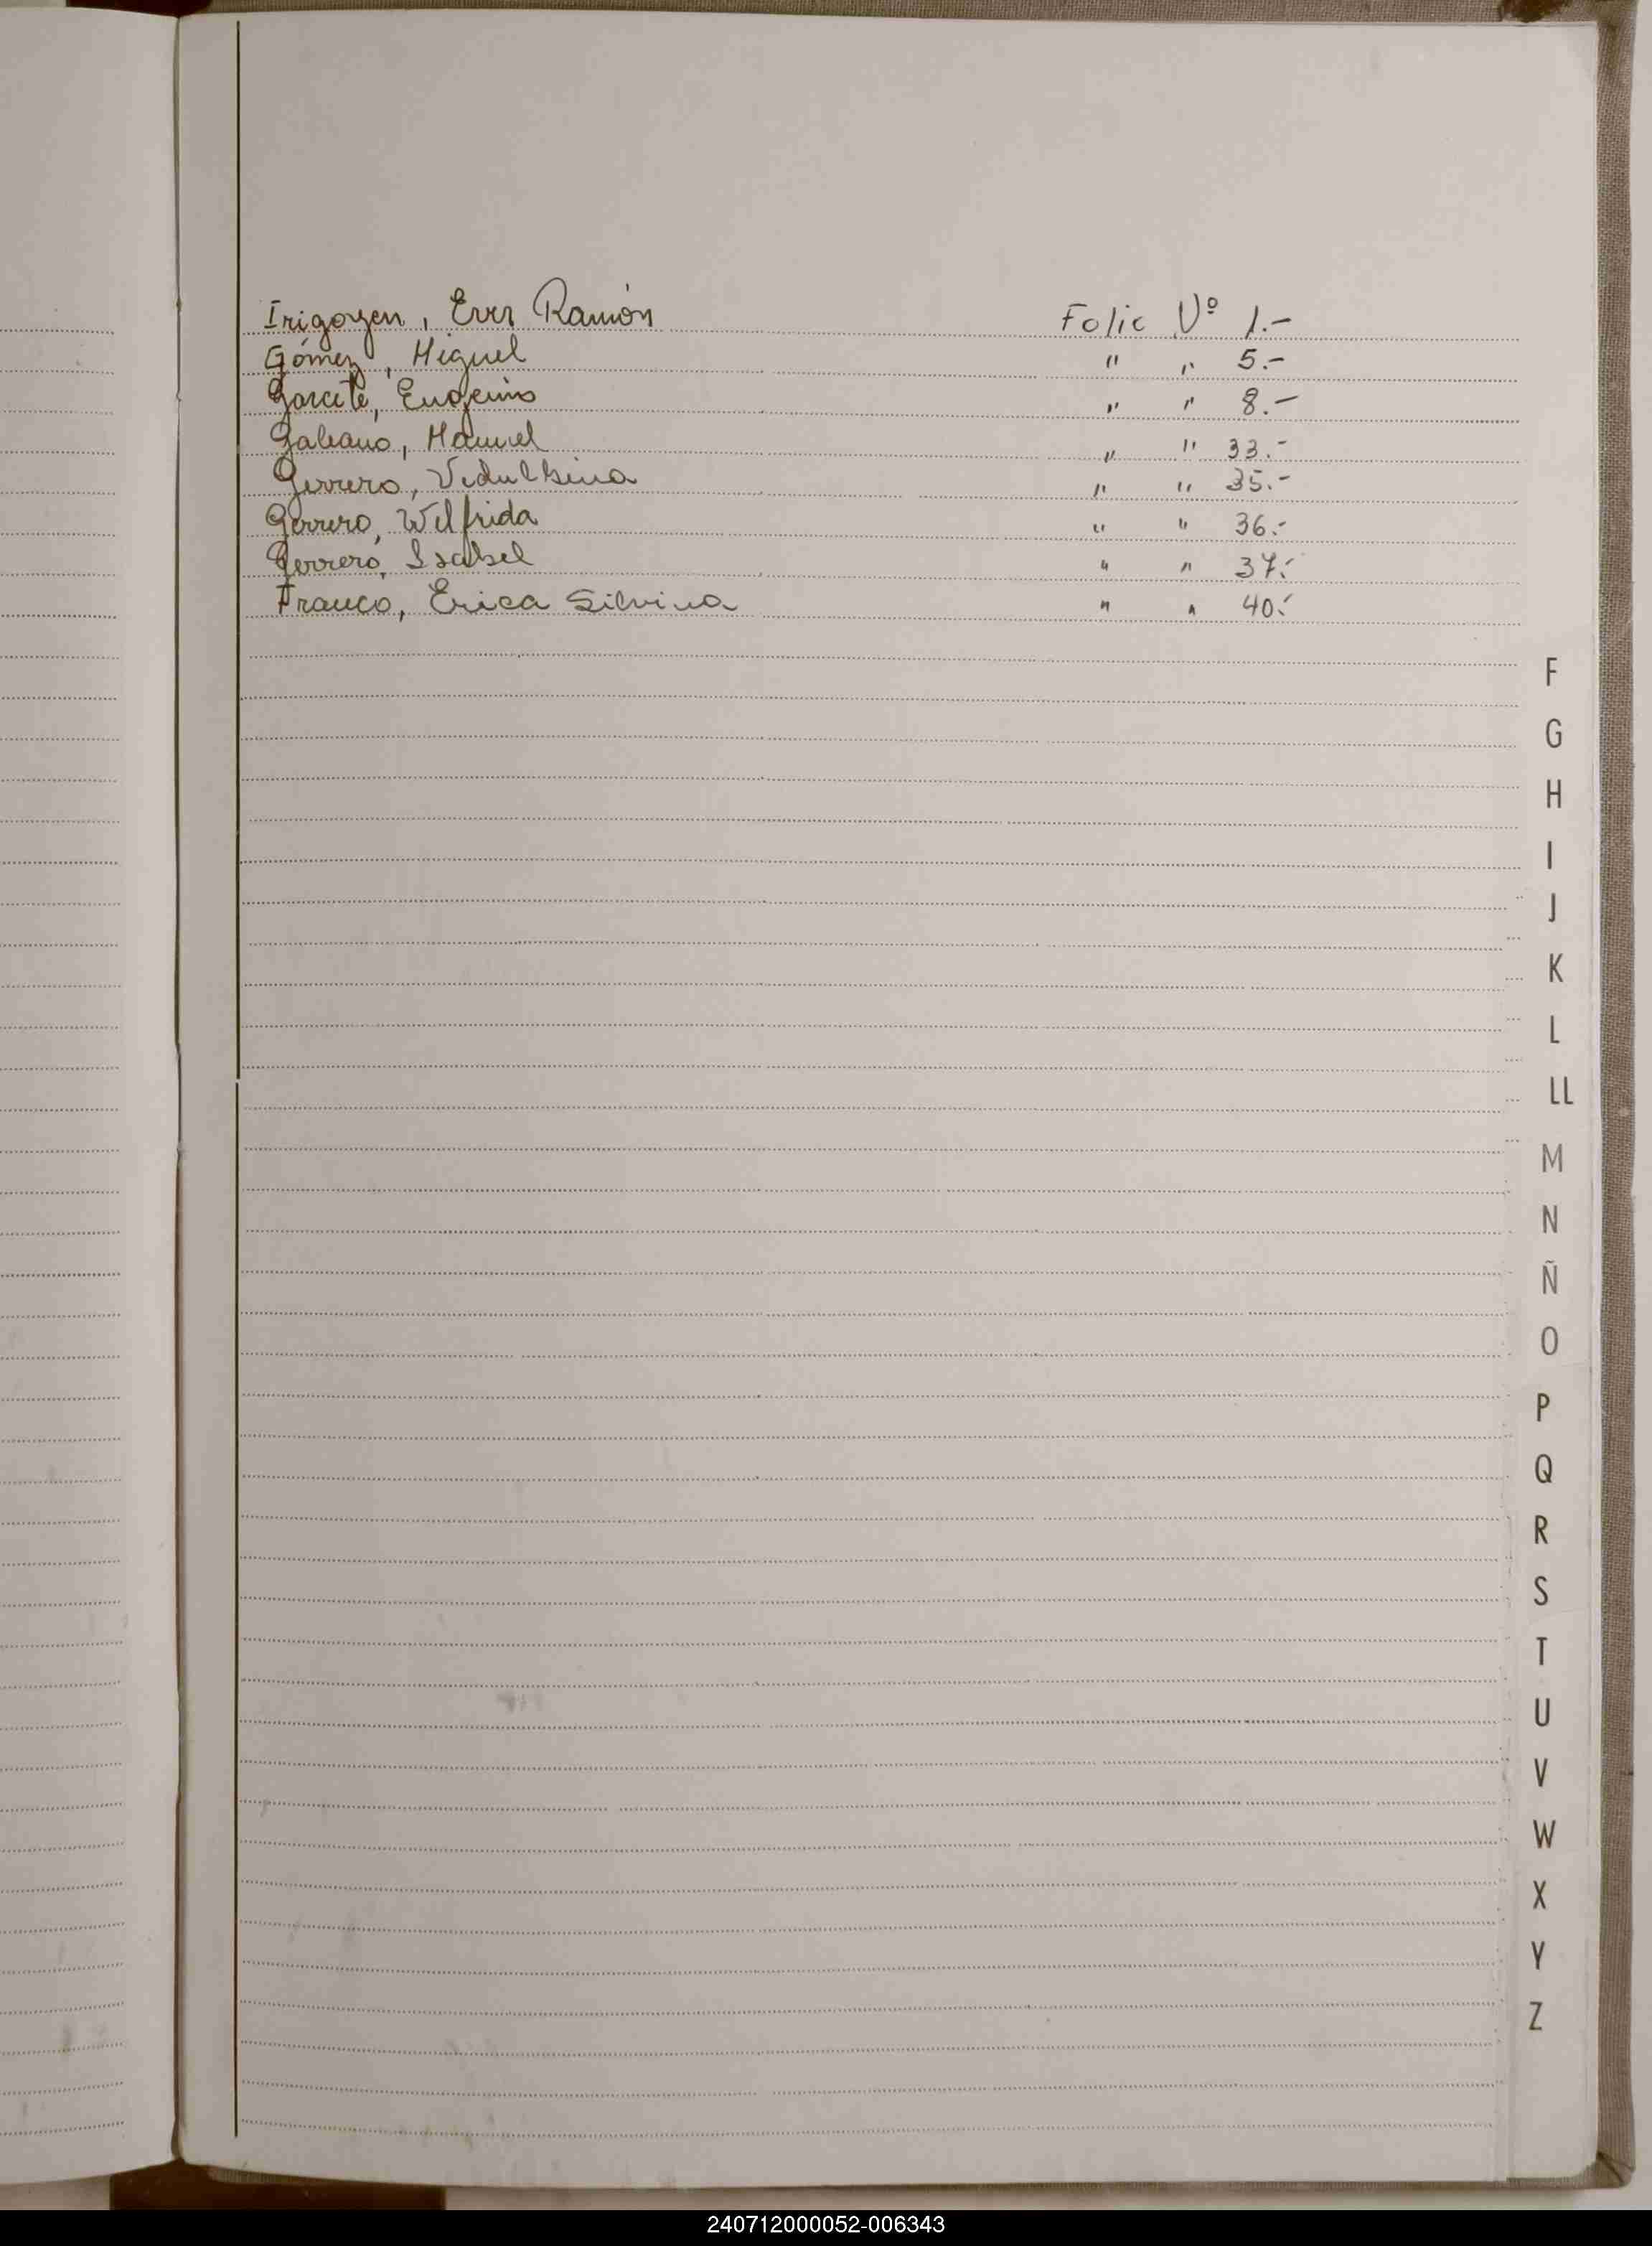 Irigoyen, Ramón Folio Nº 1.-
Gómez, Miguel " " 5.-
Garcete, Eugenio " " 8.-
Galeano, Manuel " " 33.-
Gerrero, " " 35.-
Gerrero, Wilfrida " " 36.-
Gerrero, Isabel " " 37.-
Franco, Erica Silvina " " 40.-
F
G
H
I
J
K
L
LL
M
N
Ñ
O
P
Q
R
S
T
U
V
W
X
Y
Z
240712000052-006343